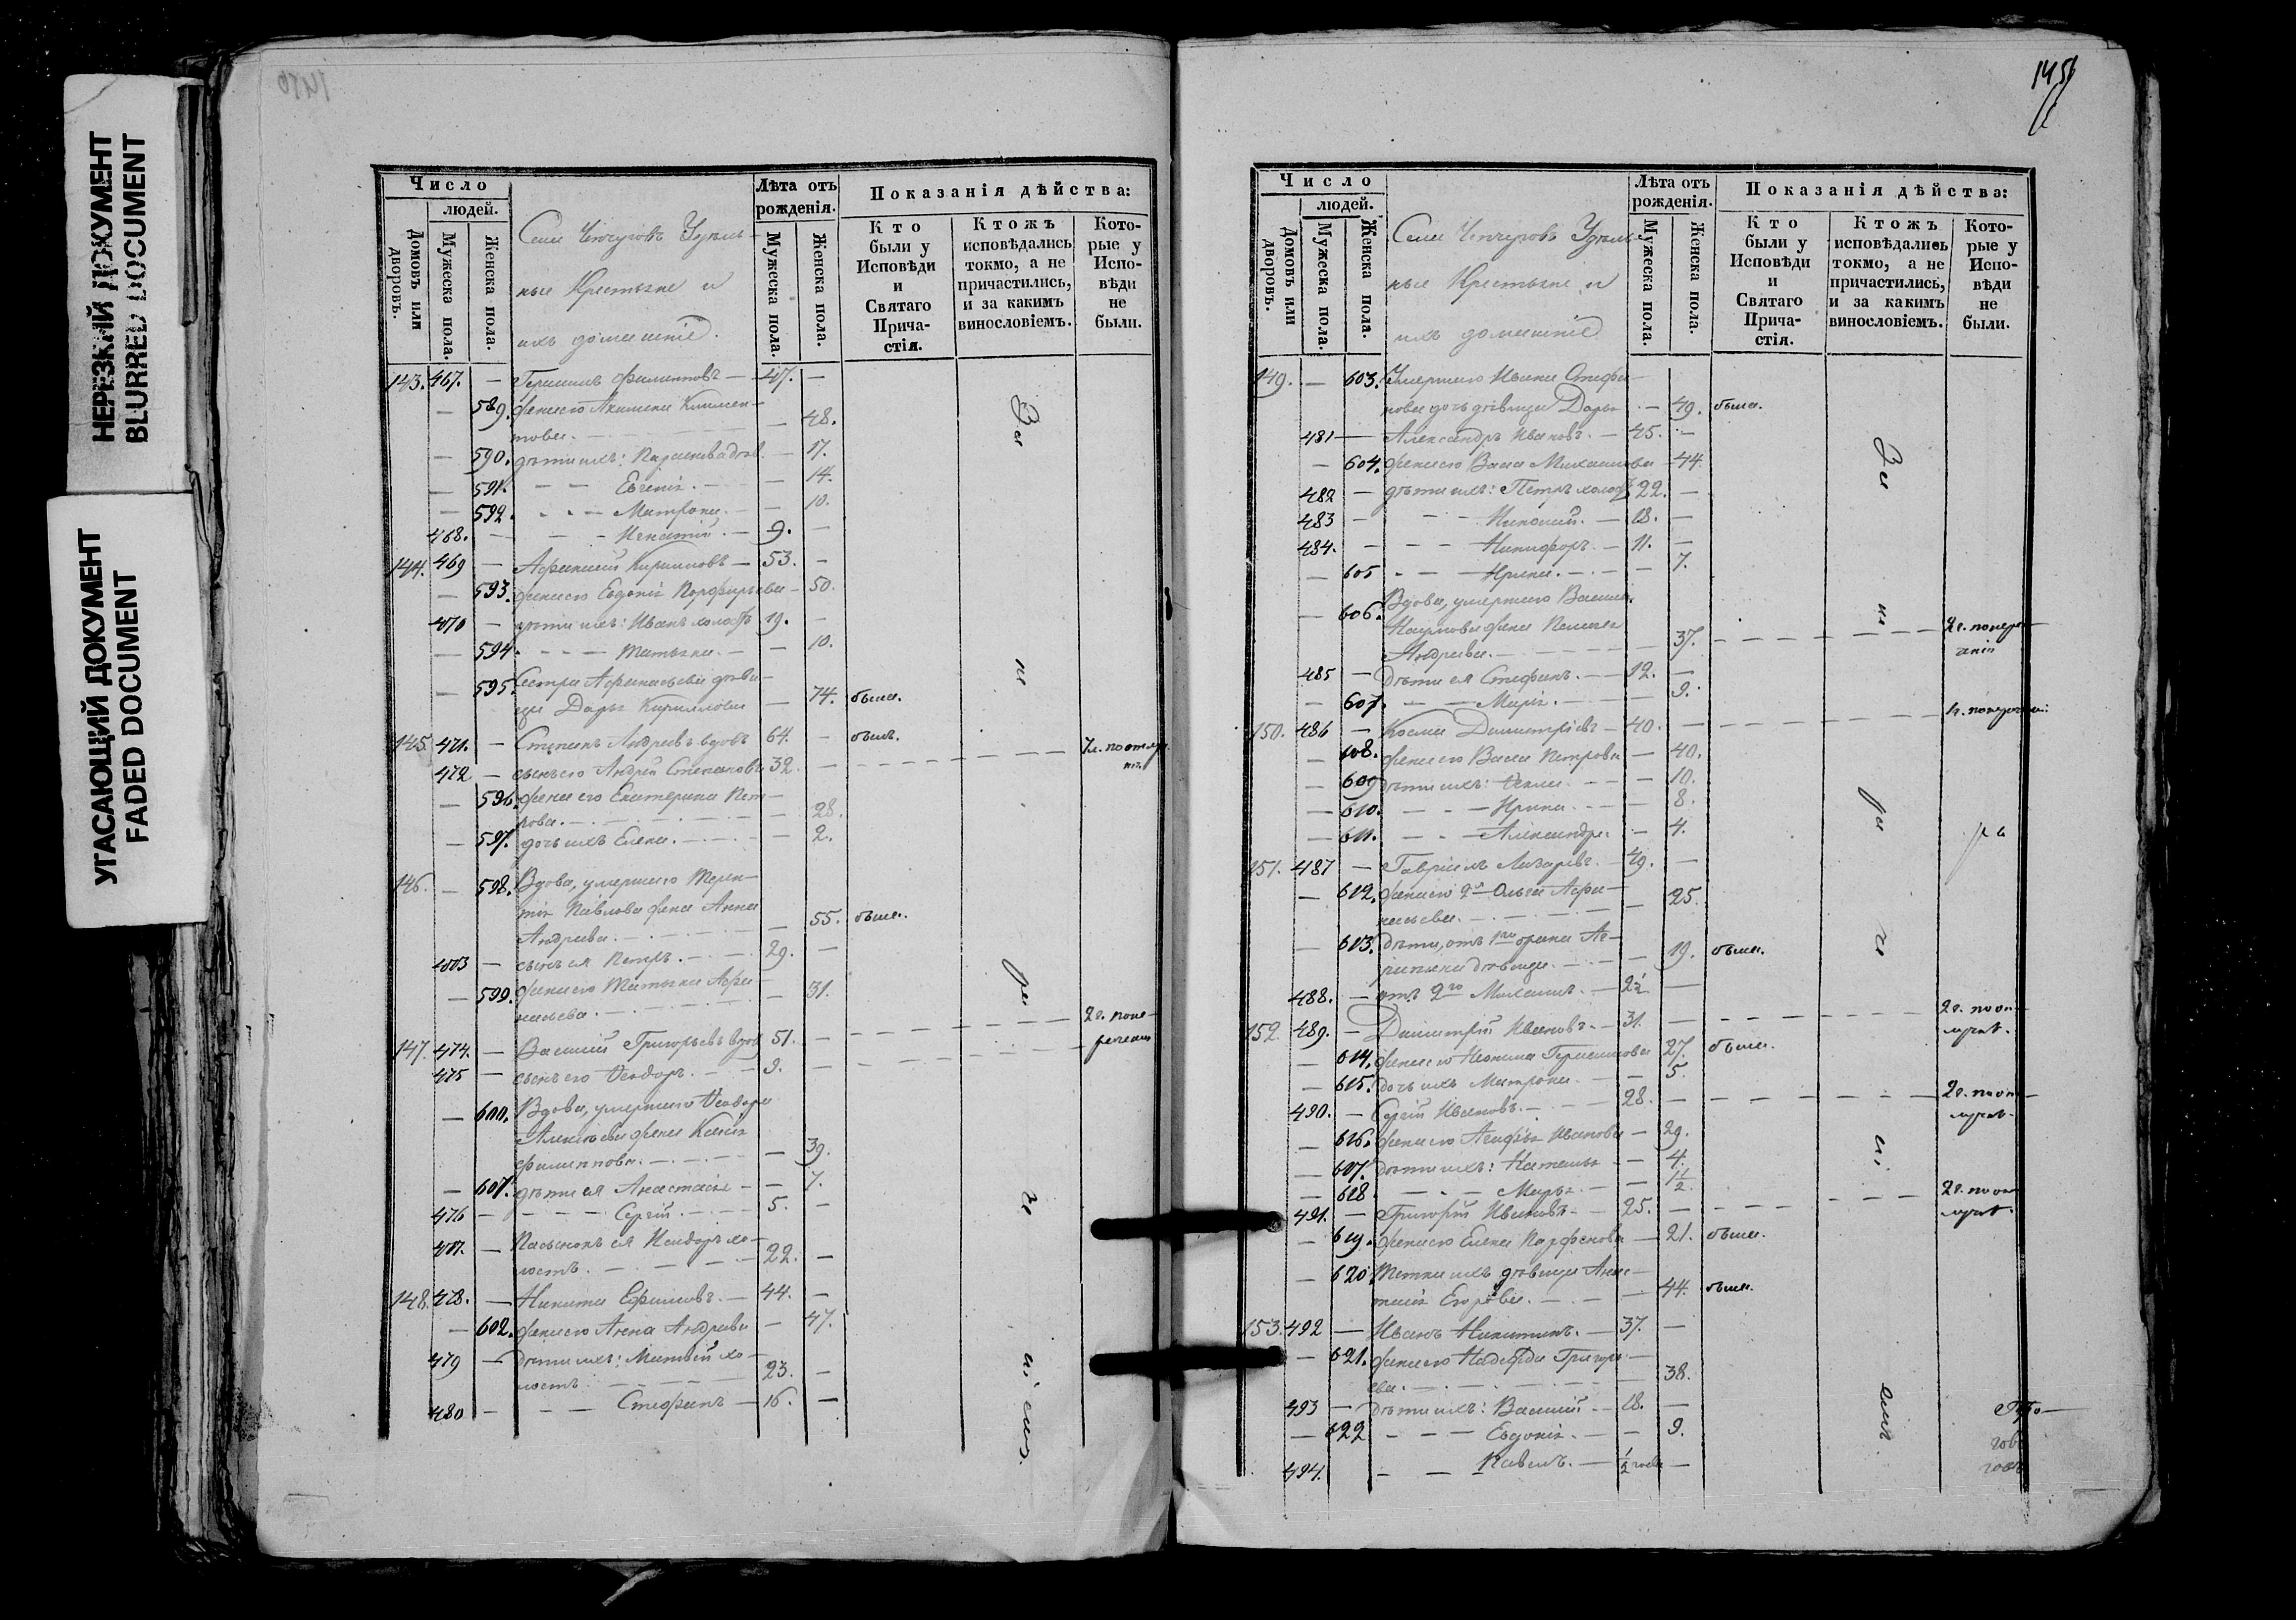 НЕРЕЗКИЙ ДОКУМЕНТ
BLURRED DOCUMENT
УГАСАЮЩИЙ ДОКУМЕНТ
FADED DOCUMENT
1450
Число
людей.
Домовъ или дворовъ.
Мужеска пола.
Женска пола.
Села Чепчуговъ Удѣль-
ные Крестьяне и
ихъ домашніе.
Лѣта отъ рожденія.
Мужеска пола.
Женска пола.
Показанія дѣйства:
Кто были у Исповѣди и Святаго Прича-стія.
Ктожъ исповѣдались токмо, а не причастились, и за какимъ винословіемъ.
Кото-рые у Испо-вѣди не были.
143. 467. — Герасимъ Филипповъ — 47. —
— 589. Жена его Акилина Климен-
това. — 48.
— 590. дѣти ихъ: Параскева дѣв. — 17.
— 591. — — Евгенія. — 14.
— 592. — — Матрона. — 10.
468. — — — Игнатій. — 9. —
144. 469 — Афанасій Кирилловъ — 53. —
— 593. Жена его Евдокія Порфирьева — 50.
470 — дѣти ихъ: Иванъ холост 19. —
— 594. — — Татьяна. — 10.
— 595. Сестра Афанасьева дѣви-
ца Дарья Кириллова — 74. была.
145. 471. — Степанъ Андреевъ вдовъ 64. — былъ.
472 — сынъ его Андрей Степановъ 32. —
— 596. Жена его Екатерина Пет-
рова. — 28.
— 597. дочь ихъ Елена. — 2.
146. — 598. Вдова, умершаго Терен-
тія Павлова жена Анна
Андреева. — 55. была.
473 — сынъ ея Петръ. — 29. —
— 599. Жена его Татьяна Афа-
насьева. — 31.
2 г. попе-
реченію
147. 474. — Василій Григорьевъ вдов 51. —
475 — сынъ его Ѳеодоръ. — 9. —
— 600. Вдова, умершаго Ѳеодора
Алексѣева жена Ксенія
Филиппова. — 39.
— 601. дѣти ея Анастасія — 7.
476 — — — Сергій. — 5. —
477. — Пасынокъ ея Исидоръ хо-
лостъ. — 22. —
148. 478. — Никита Ефимовъ. — 44. —
— 602. Жена его Анна Андреева — 47.
479 — Дѣти ихъ: Матвей хо-
лостъ. — 23. —
480 — — — Стефанъ — 16. —
1451
Число
людей.
Домовъ или дворовъ.
Мужеска пола.
Женска пола.
Села Чепчуговъ Удѣль-
ные Крестьяне и
ихъ домашніе
Лѣта отъ рожденія.
Мужеска пола.
Женска пола.
Показанія дѣйства:
Кто были у Исповѣди и Святаго Прича-стія.
Ктожъ исповѣдались токмо, а не причастились, и за какимъ винословіемъ.
Кото-рые у Испо-вѣди не были.
149. — 603. Умершаго Ивана Стефа-
нова дочь дѣвица Дарья — 49. была.
481 — Александръ Ивановъ. — 45. —
— 604. Жена его Васса Михаилова — 44.
482 — дѣти ихъ: Петръ холост 22. —
483 — — — Николай. — 18. —
484. — — — Никифоръ. — 11. —
— 605 — — Ирина. — 7.
— 606. Вдова, умершаго Василія
Наумова жена Пелагея
Андреева. — 37.
485 — Дѣти ея Стефанъ. — 12. —
— 607. — — Марія. — 9.
150. 486 — Косма Димитріевъ — 40. —
— 608. Жена его Васса Петрова — 40.
— 609 дѣти ихъ: Ѳекла — 10.
— 610. — — Ирина. — 8.
— 611. — — Александра. — 4.
151. 487 — Гавріилъ Лазаревъ. — 49. —
— 612. Жена его 2я Ольга Афа-
насьева. — 25.
— 613. Дѣти, отъ 1го брака Аг-
рипена дѣвица. — 19. была.
488. — отъ 2го Михаилъ. — 2½ —
152. 489. — Димитрій Ивановъ. — 31. —
— 614. Жена его Неонила Герасимова 27. была.
— 615. Дочь ихъ Матрона. — 5.
490. — Сергій Ивановъ. — 28. —
— 616. Жена его Агафья Иванова — 29.
— 617. Дѣти ихъ: Наталья — 4.
— 618. — — Марья. — 1½.
491. — Григорій Ивановъ — 25. —
— 619. Жена его Елена Парфенова — 21. была.
— 620. Тетка ихъ дѣвица Анас-
тасія Егорова. — 44. была.
153. 492 — Иванъ Никитинъ. — 37. —
— 621. Жена его Надежда Григорь-
ева. — 38.
493 — Дѣти ихъ: Василій — 18. —
— 622 — — Евдокія. — 9.
494. — — Павелъ. — ½ года —